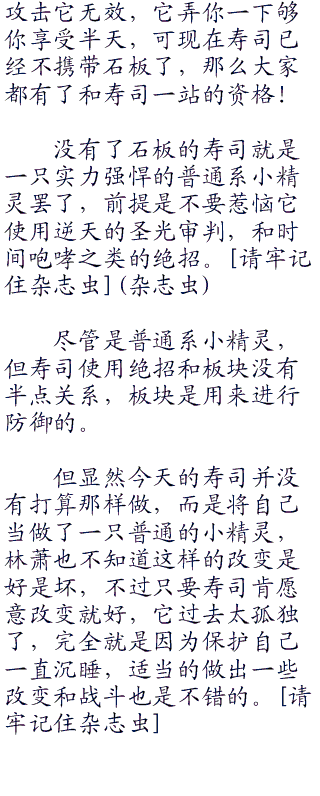 攻击它无效，它弄你一下够
你享受半天，可现在寿司已
经不携带石板了，那么大家
都有了和寿司一站的资格！
没有了石板的寿司就是
一只实力强悍的普通系小精
灵罢了，前提是不要惹恼它
使用逆天的圣光审判，和时
间咆哮之类的绝招。[请牢记
住杂志虫](杂志虫)
尽管是普通系小精灵，
但寿司使用绝招和板块没有
半点关系，板块是用来进行
防御的。
但显然今天的寿司并没
有打算那样做，而是将自己
当做了一只普通的小精灵，
林萧也不知道这样的改变是
好是坏，不过只要寿司肯愿
意改变就好，它过去太孤独
了，完全就是因为保护自己
一直沉睡，适当的做出一些
改变和战斗也是不错的。[请
牢记住杂志虫]